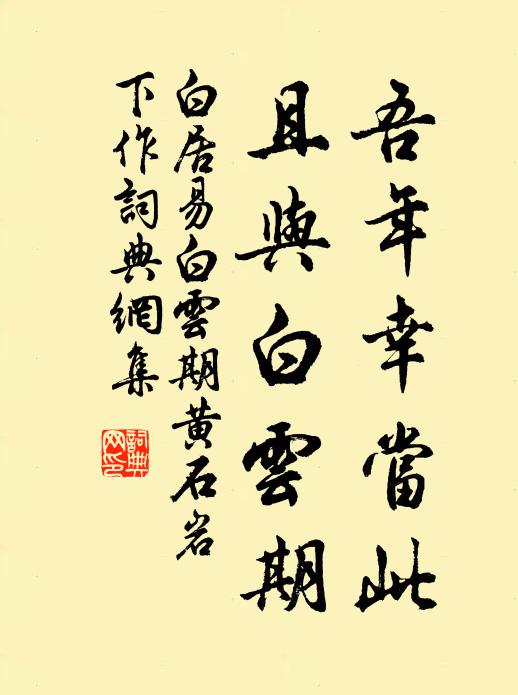 吾年幸當此
且與白雲期
白居易白雲期黄石岩
下作詞典網集
詞典
网印